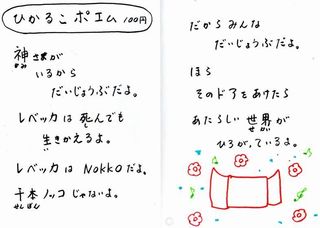 ひかるこ ポエム 100円
神さまが
かみ
いるから
だいじょうぶだよ。
レベッカは 死んでも
し
生きかえるよ。
い
レベッカは NOKKOだよ。
千本ノッコじゃないよ。
せんぼん
だから みんな
だいじょうぶだよ。
ほら
そのドアをあけたら
あたらしい 世界が
せかい
ひろがっているよ。